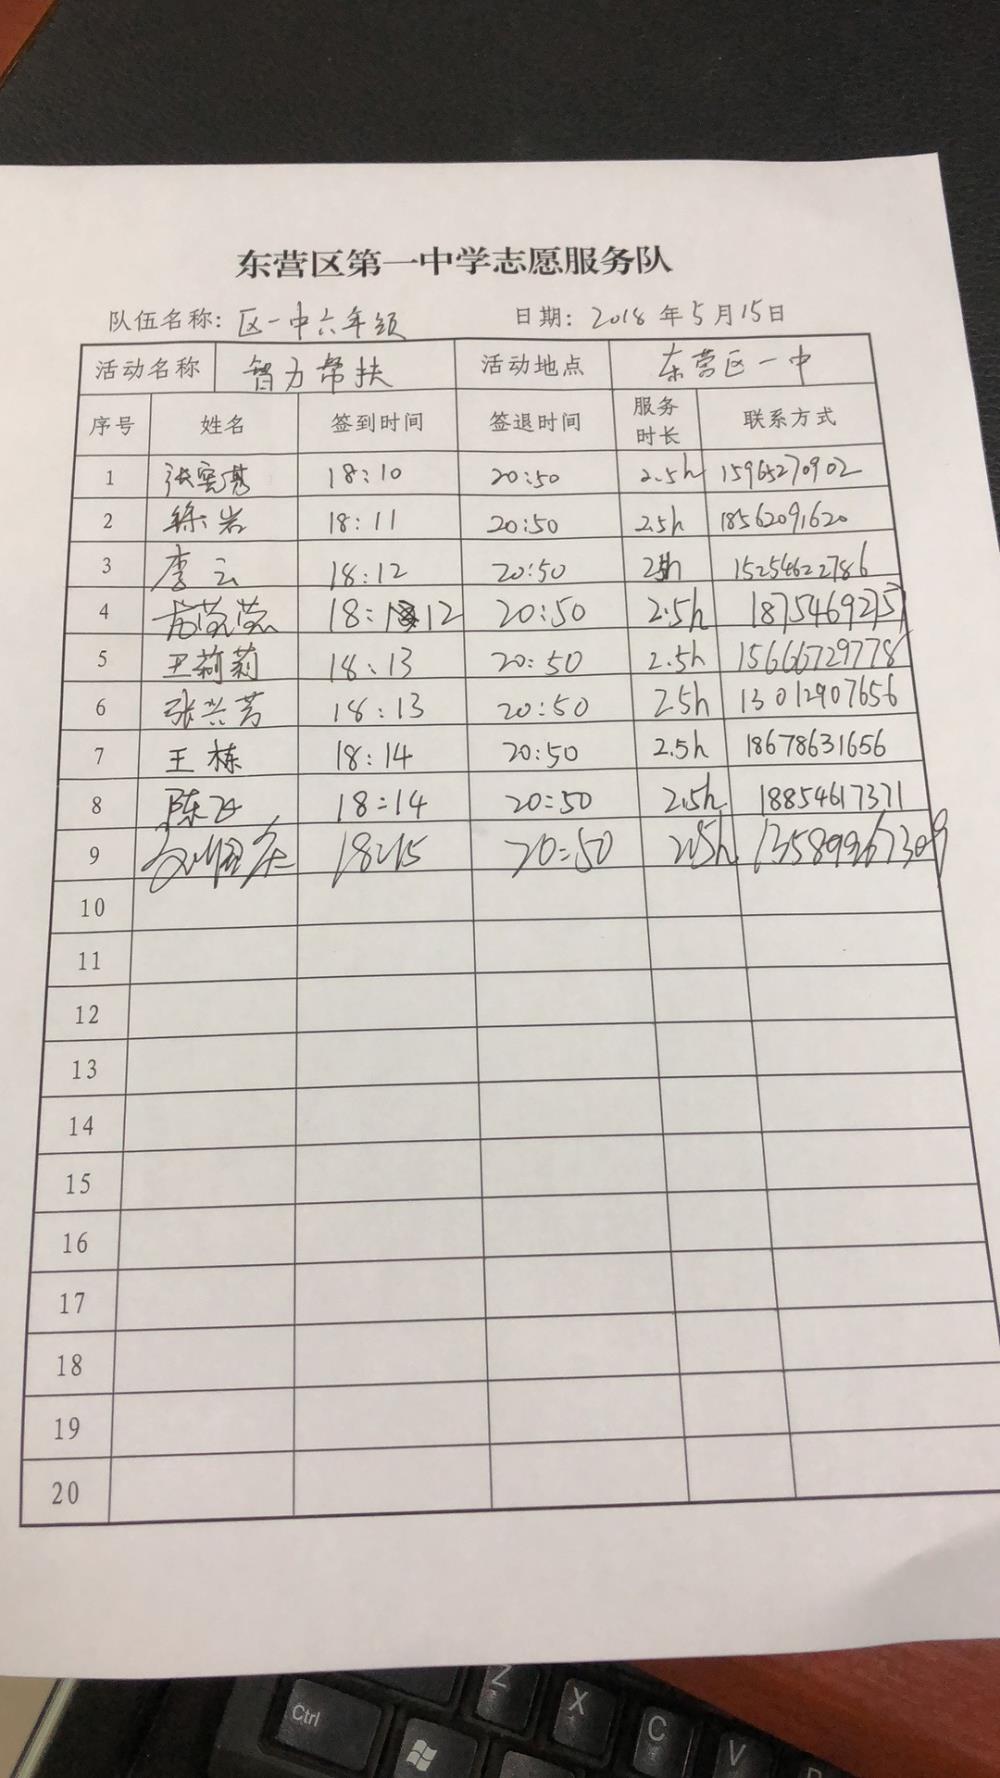 东营区第一中学志愿服务队
队伍名称: 区一中六年级 日期: 2018 年 5 月 15 日
活动名称 智力帮扶 活动地点 东营区一中
序号 姓名 签到时间 签退时间 服务时长 联系方式
1 18:10 20:50 2.5h 15965270902
2 徐岩 18:11 20:50 2.5h 18562091620
3 李云 18:12 20:50 2.5h 15254622786
4 18:12 20:50 2.5h 1875469275
5 王莉莉 18:13 20:50 2.5h 15666729778
6 张兴芳 18:13 20:50 2.5h 13012907656
7 王栋 18:14 20:50 2.5h 18678631656
8 陈飞 18:14 20:50 2.5h 18854617371
9 18:15 20:50 2.5h 13589967309
10
11
12
13
14
15
16
17
18
19
20
Ctrl
Z
X
C
V